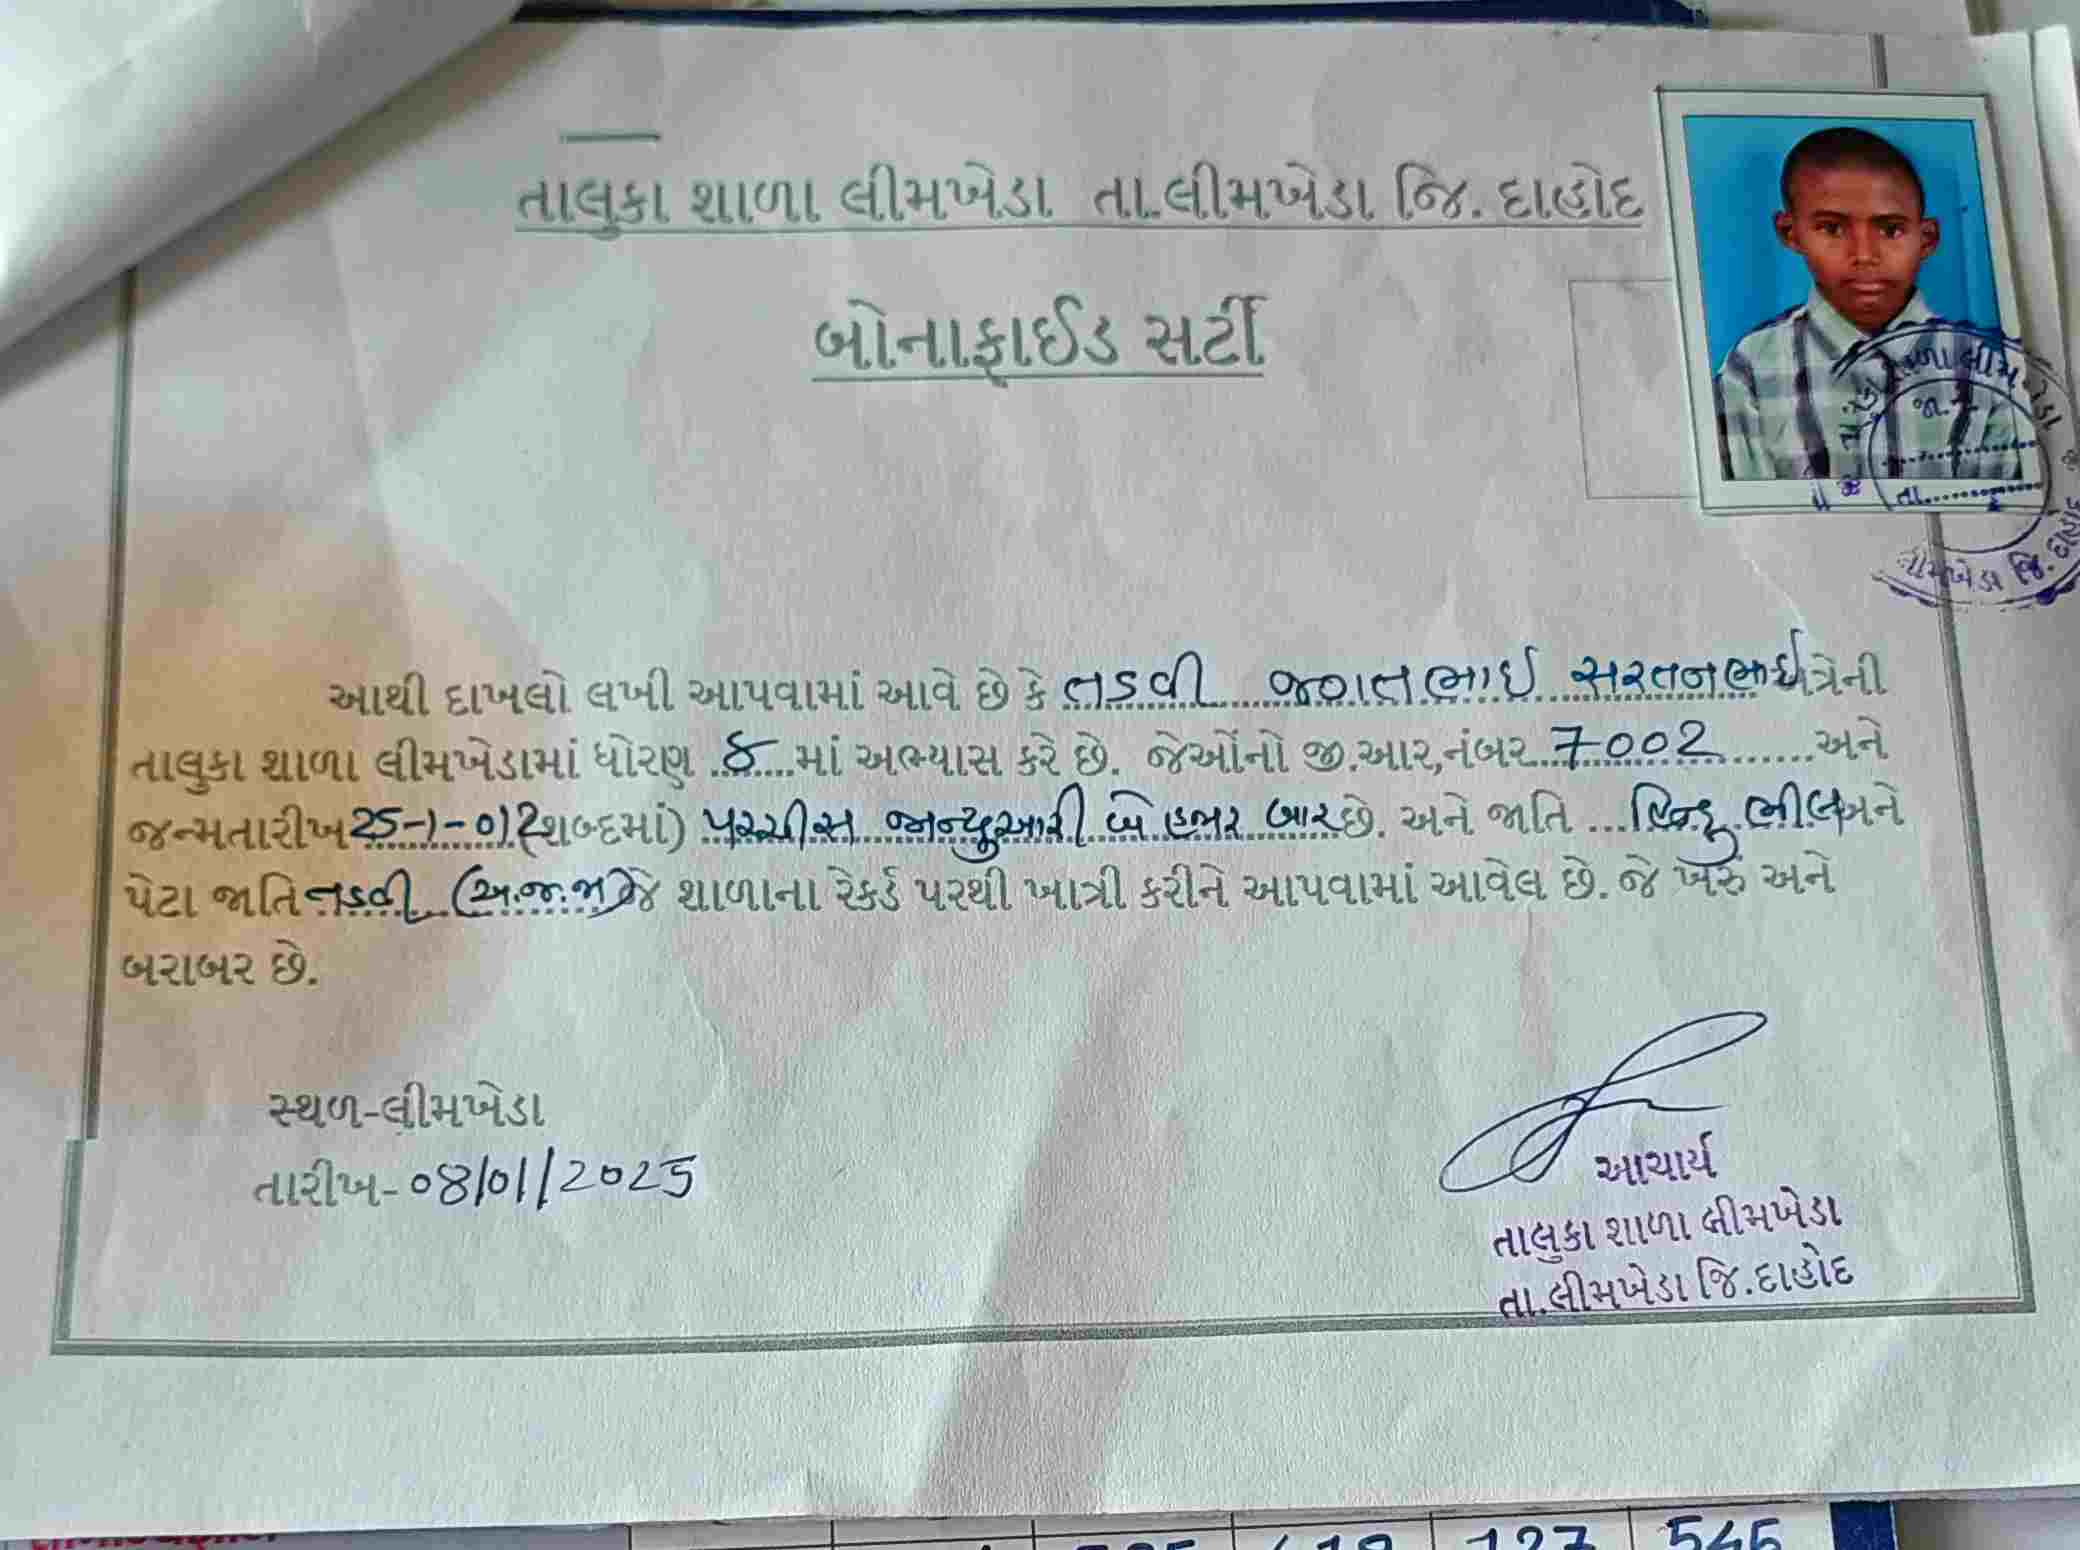 તાલુકા શાળા લીમખેડા તા.લીમખેડા જિ. દાહોદ
બોનાફાઈડ સર્ટી
આથી દાખલો લખી આપવામાં આવે છે કે તડવી જગતભાઈ સરતનભાઈ અત્રેની
તાલુકા શાળા લીમખેડામાં ધોરણ ..૪.... માં અભ્યાસ કરે છે. જેઓંનો જી.આર,નંબર 7002 ...... અને
જન્મતારીખ 25-1-012 (શબ્દમાં) પચ્ચીસ જાન્યુઆરી બે હજાર બાર છે. અને જાતિ ... હિન્દુ ભીલ અને
પેટા જાતિ તડવી (અ.જ.જા) જે શાળાના રેકર્ડ પરથી ખાત્રી કરીને આપવામાં આવેલ છે. જે ખરું અને
બરાબર છે.
સ્થળ-લીમખેડા
તારીખ-08/01/2025
આચાર્ય
તાલુકા શાળા લીમખેડા
તા.લીમખેડા જિ.દાહોદ
127 545